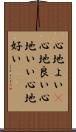 心地よい
心地良い心
地いい心地
好い